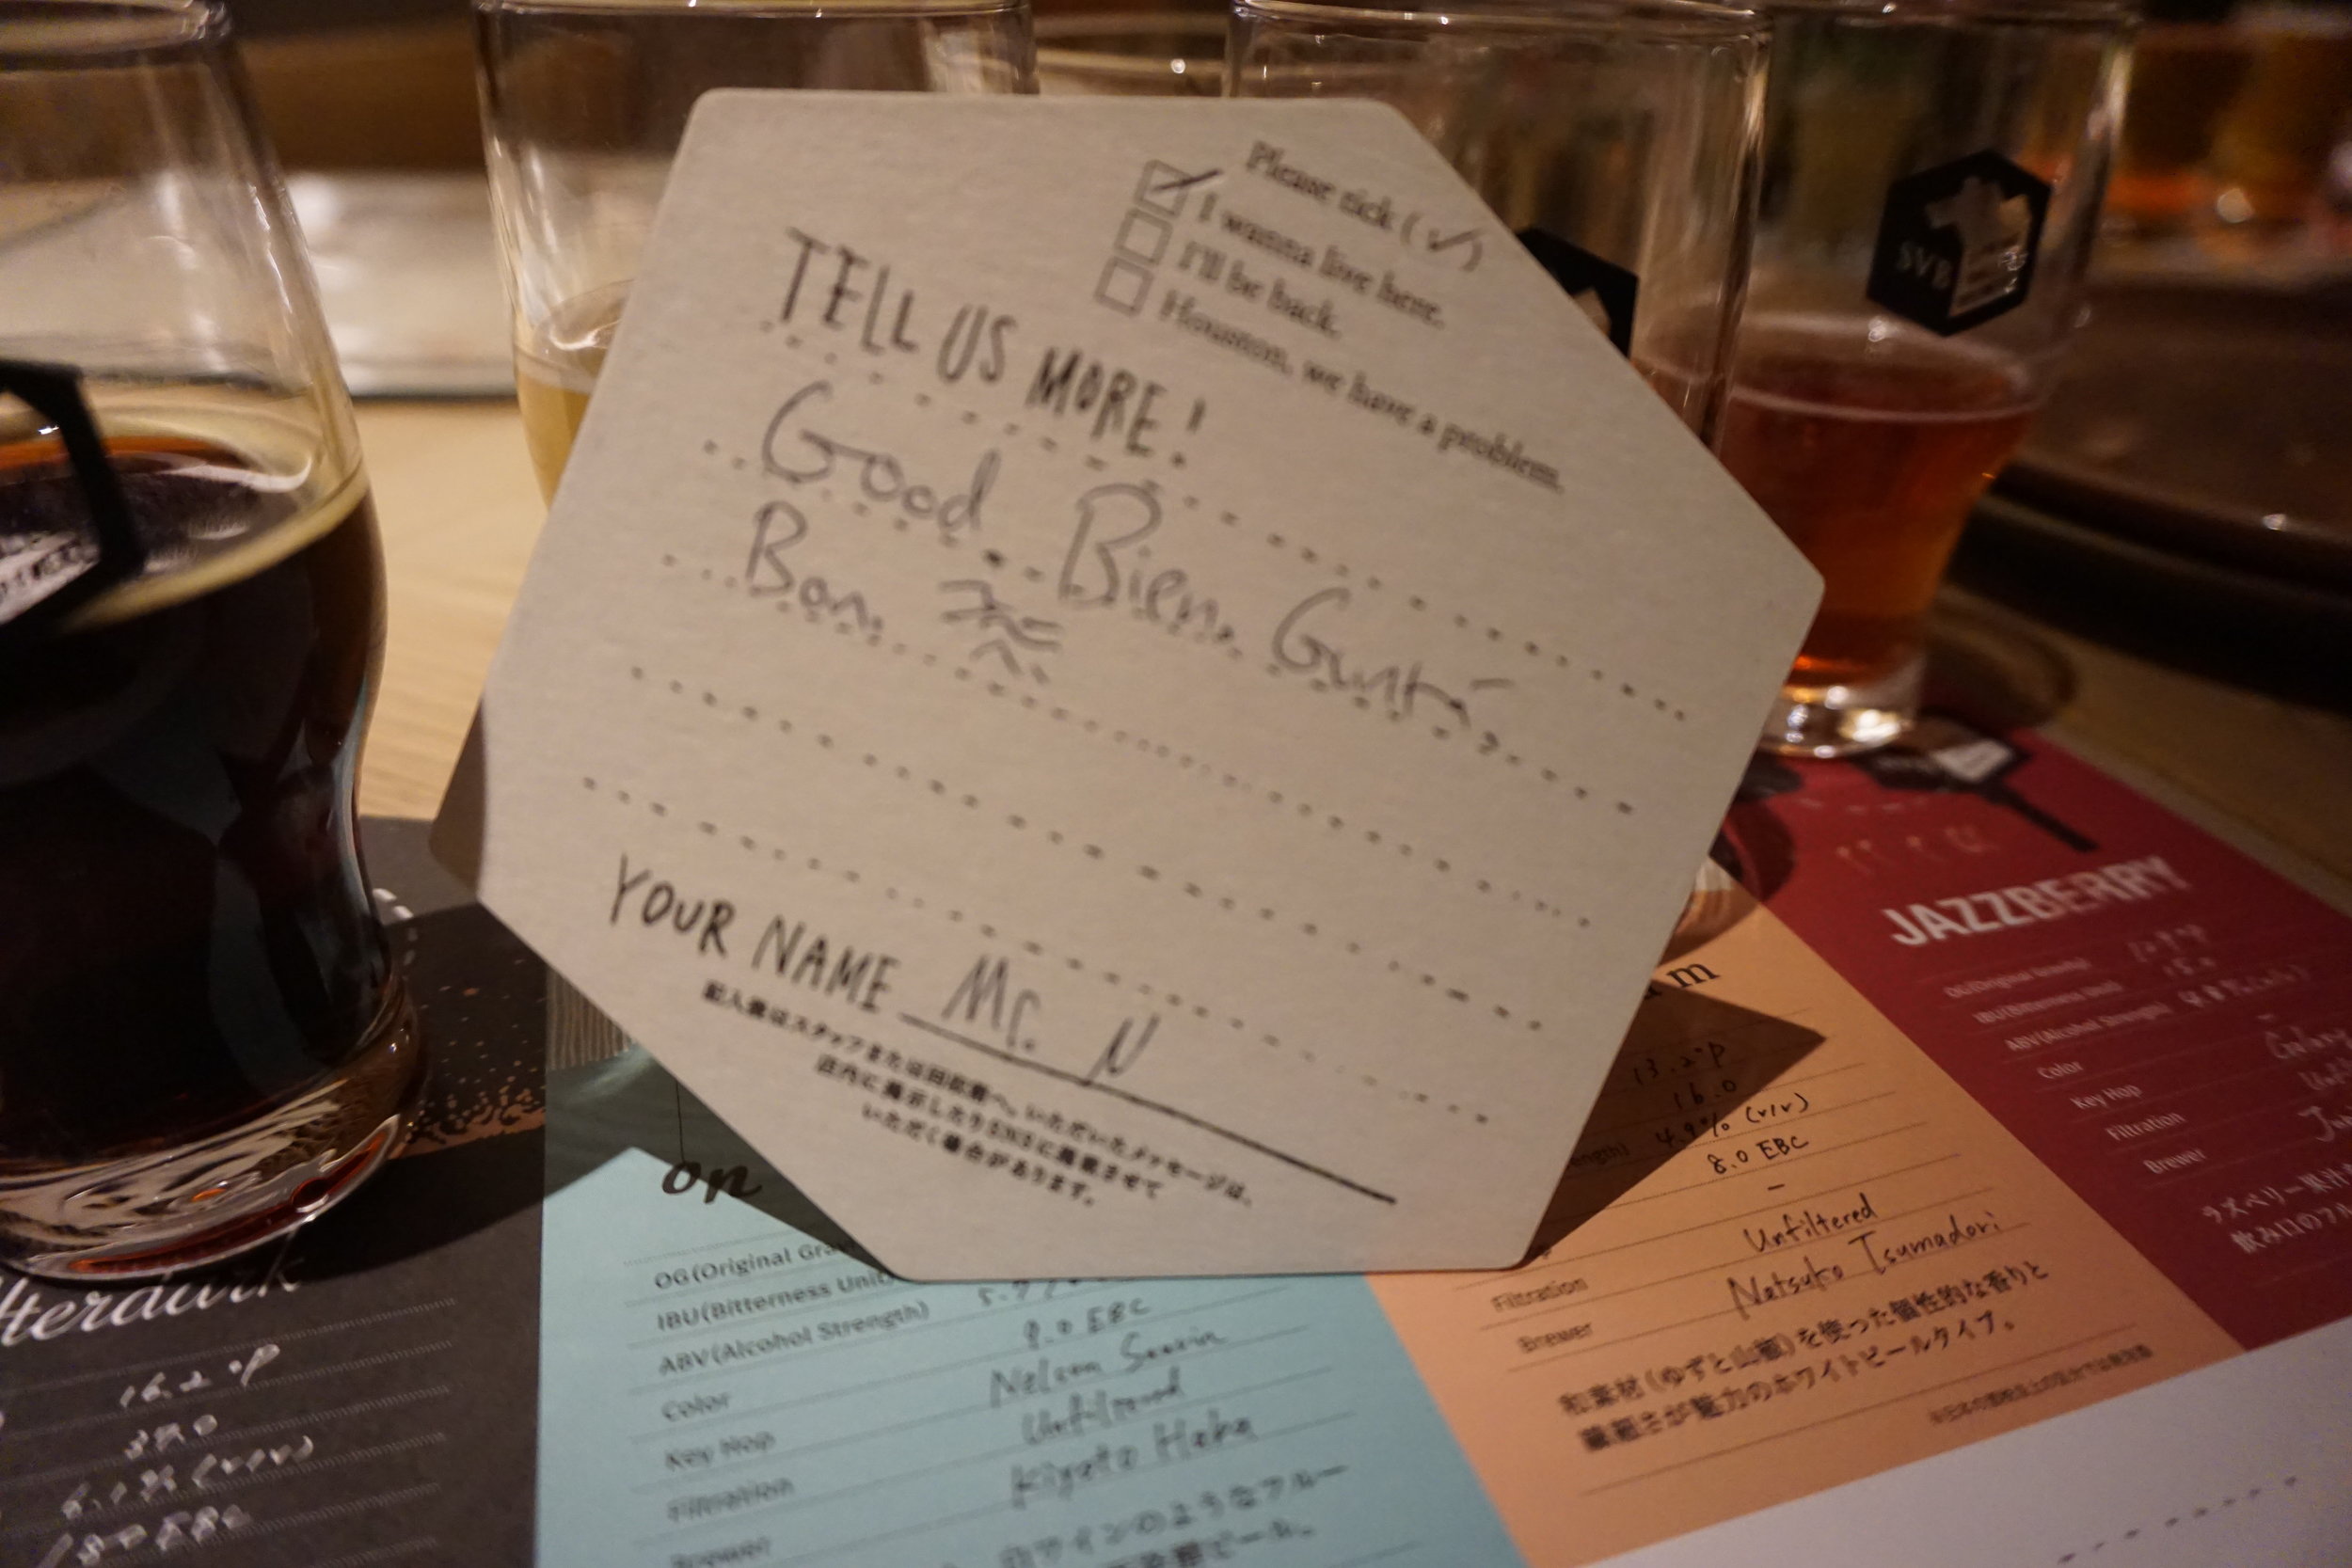 Please tick (✓)
I wanna live here.
I'll be back.
Houston, we have a problem.
TELL US MORE!
Good Bien
Bon
YOUR NAME Mr. N
記入後はスタッフまたは回収箱へ。いただいたメッセージは、
店内に掲示したりSNSに掲載させて
いただく場合があります。
SVB
Afterdark
16.2°P
on
OG(Original
IBU(Bitterness Unit)
ABV(Alcohol Strength)
Color 9.0 EBC
Key Hop Nelson Sauvin
Filtration Unfiltered
Brewer
白ワインのようなフルー
13.2°P
16.0
4.9% (v/v)
8.0 EBC
–
Filtration Unfiltered
Brewer Natsuko Tsumadori
和素材(ゆずと山椒)を使った個性的な香りと
繊細さが魅力のホワイトビールタイプ。
JAZZBERRY
OG(Original Gravity)
IBU(Bitterness Unit) 15.0
ABV(Alcohol Strength)
Color
Key Hop
Filtration
Brewer
ラズベリー果汁